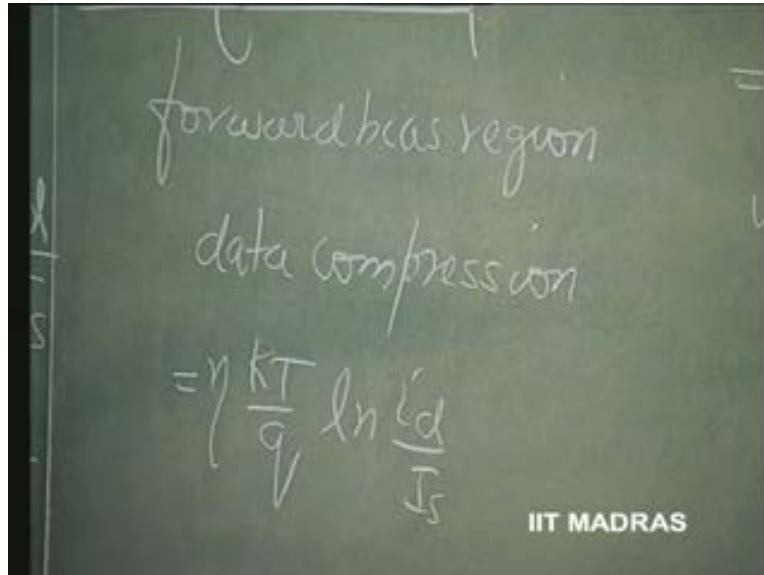 forward bias region
data compression
= η kT/q ln id/Is
IIT MADRAS